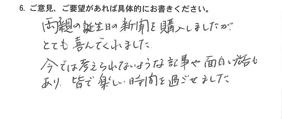 6. ご意見、ご要望があれば具体的にお書きください。
両親の誕生日の新聞を購入しましたが
とても喜んでくれました
今では考えられないような記事や面白い広告も
あり、皆で楽しい時間を過ごせました